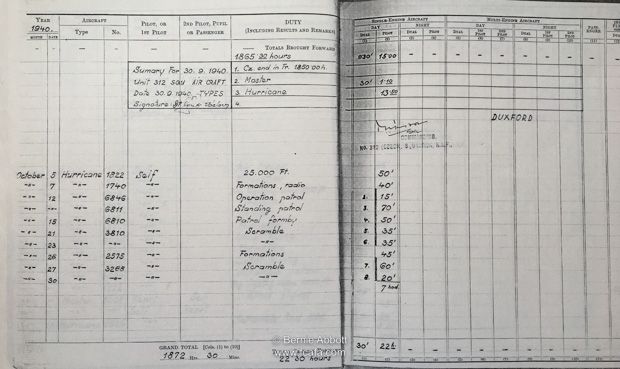 YEAR 1940. AIRCRAFT PILOT, OR 1ST PILOT 2ND PILOT, PUPIL OR PASSENGER DUTY (INCLUDING RESULTS AND REMARKS)
MONTH DATE Type No.
— — — TOTALS BROUGHT FORWARD
1865 22 hours
Sumary For 30. 9. 1940. 1. Cz. end in Fr. 1850 00 h.
Unit 312 SQU AIR CRAFT 2. Master
Date 30. 9. 1940. TYPES 3. Hurricane
Signature: 4.
October 5 Hurricane 1822 Self 25.000 Ft.
-"- 7 -"- 1740 -"- Formations, radio
-"- 12 -"- 6846 -"- Operation patrol
-"- -"- -"- 6811 -"- Standing patrol
-"- 15 -"- 6810 -"- Patrol formby
-"- 21 -"- 3810 -"- Scramble
-"- 23 -"- -"- -"- -"-
-"- 26 -"- 2575 -"- Formations
-"- 27 -"- 3268 -"- Scramble
-"- 30 -"- -"- -"-
GRAND TOTAL [Cols. (1) to (10)]
1872 Hrs. 30 Mins. 22 30 hours
SINGLE-ENGINE AIRCRAFT MULTI-ENGINE AIRCRAFT PASSENGER
DAY NIGHT DAY NIGHT
DUAL PILOT DUAL PILOT DUAL 1ST PILOT 2ND PILOT DUAL 1ST PILOT 2ND PILOT
0'30' 15'00
30' 1'10
13'50
DUXFORD
COMMANDING,
50'
40'
1. 15'
3. 70'
4. 50'
5. 35'
6. 35'
45'
7. 60'
8. 20'
7 hod.
30' 22h
© Bernie Abbott